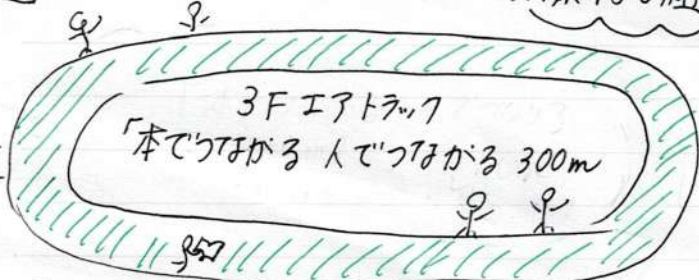 3F エアトラック
「本でつながる 人でつながる 300m